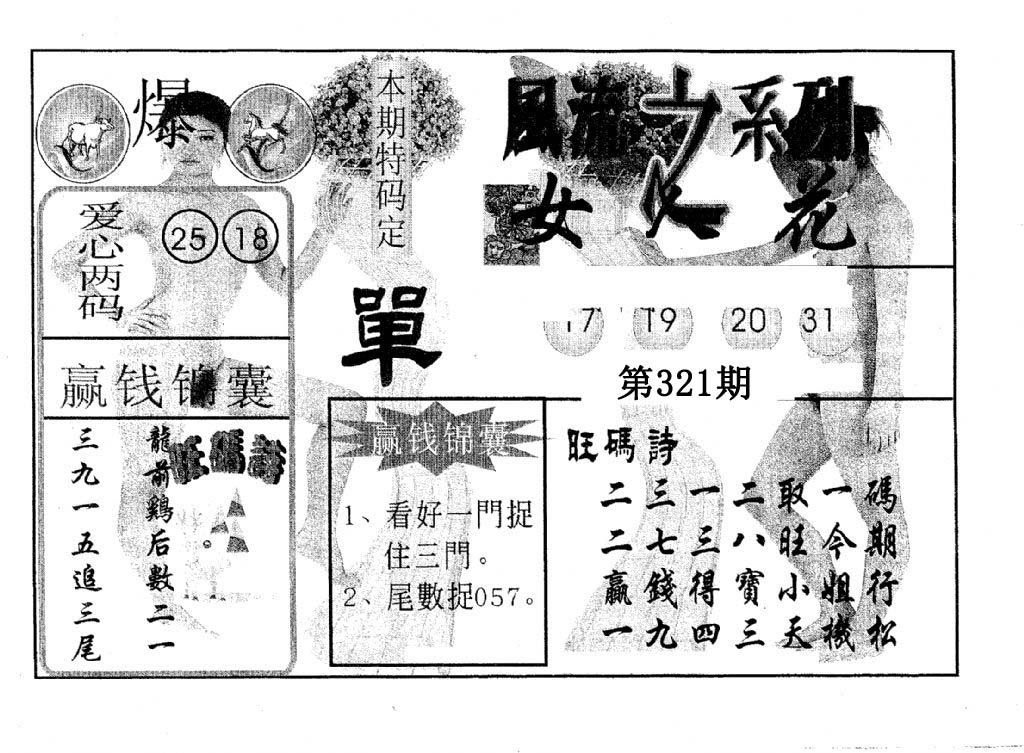 爆
爱心两码
25 18
赢钱锦囊
龍前鷄后數二一
三九一五追三尾
旺碼詩
本期特码定
單
赢钱锦囊
1、看好一門捉
住三門。
2、尾數捉057。
風流之系列
女人花
17 19 20 31
第321期
旺碼詩
碼期行松
一今姐機
取旺小天
二八寶三
一三得四
三七錢九
二二贏一